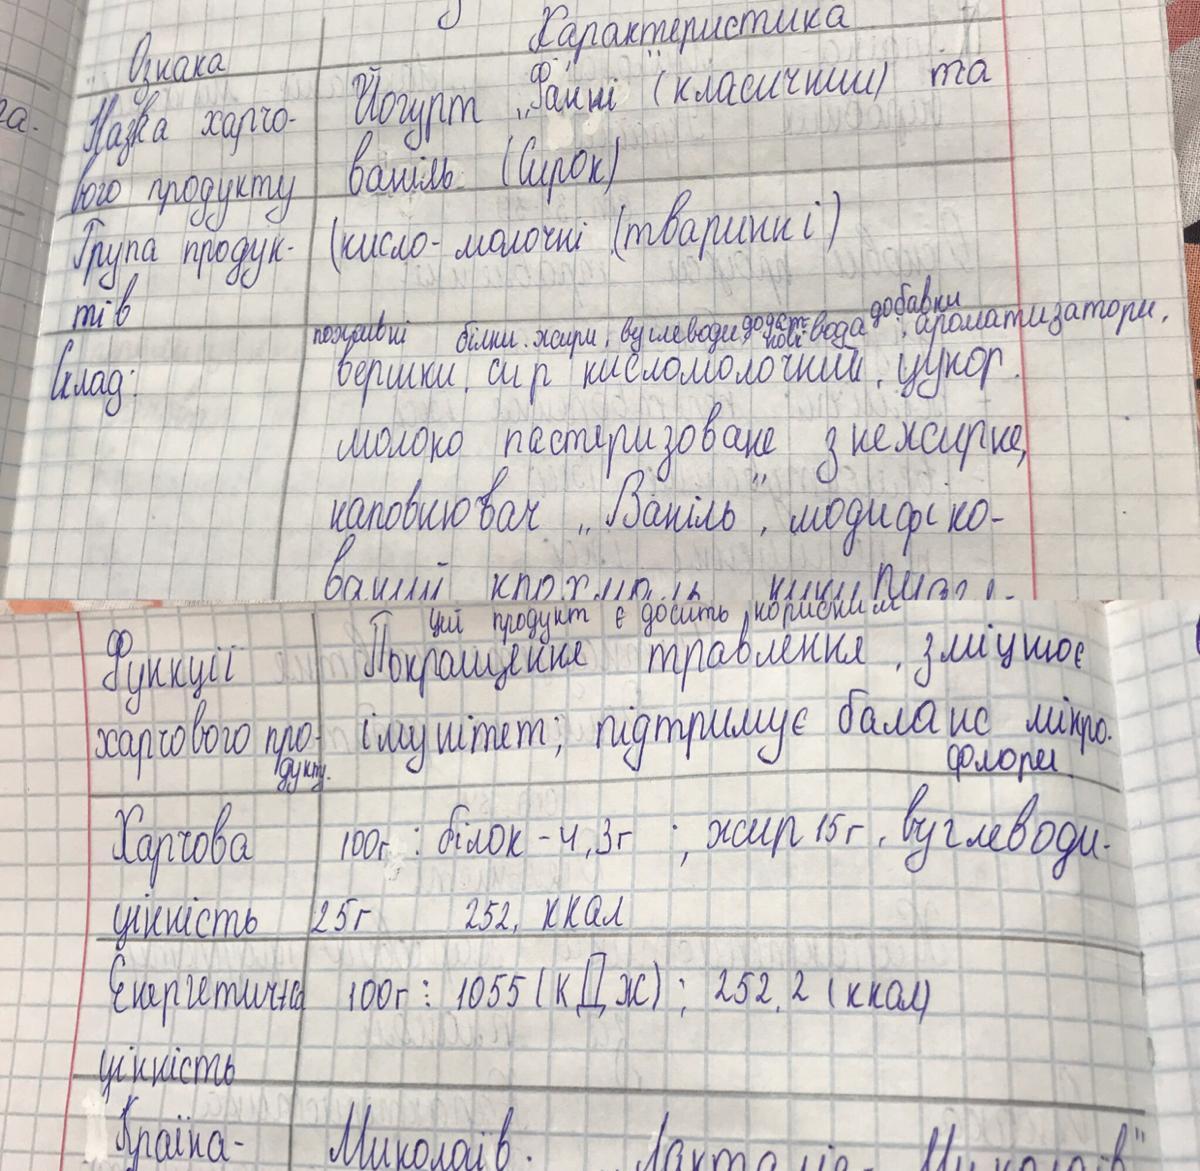 Ознака Характеристика
Назва харчо- Йогурт „Фанні" (класичний) та
вого продукту ваніль (Сирок)
Група продук- (кисло-молочні (тваринні)
тів
поживні білки. жири, вуглеводи, додат- вода добавки, ароматизатори,
нові
Склад: вершки, сир кисломолочний, цукор.
молоко пастеризоване знежирне,
наповнювач „Ваніль", модифіко-
ваний крохмаль
Цей продукт є досить корисним
Функції Покращення травлення, зміцнює
харчового про- імунітет; підтримує баланс мікро.
дукту. флори
Харчова 100г: білок - 4,3г ; жир 15г, вуглеводи-
цінність 25г 252, ккал
Енергетична 100г: 1055 (кДж); 252,2 (ккал)
цінність
Країна- Миколаїв. „Лакталіс-Миколаїв"